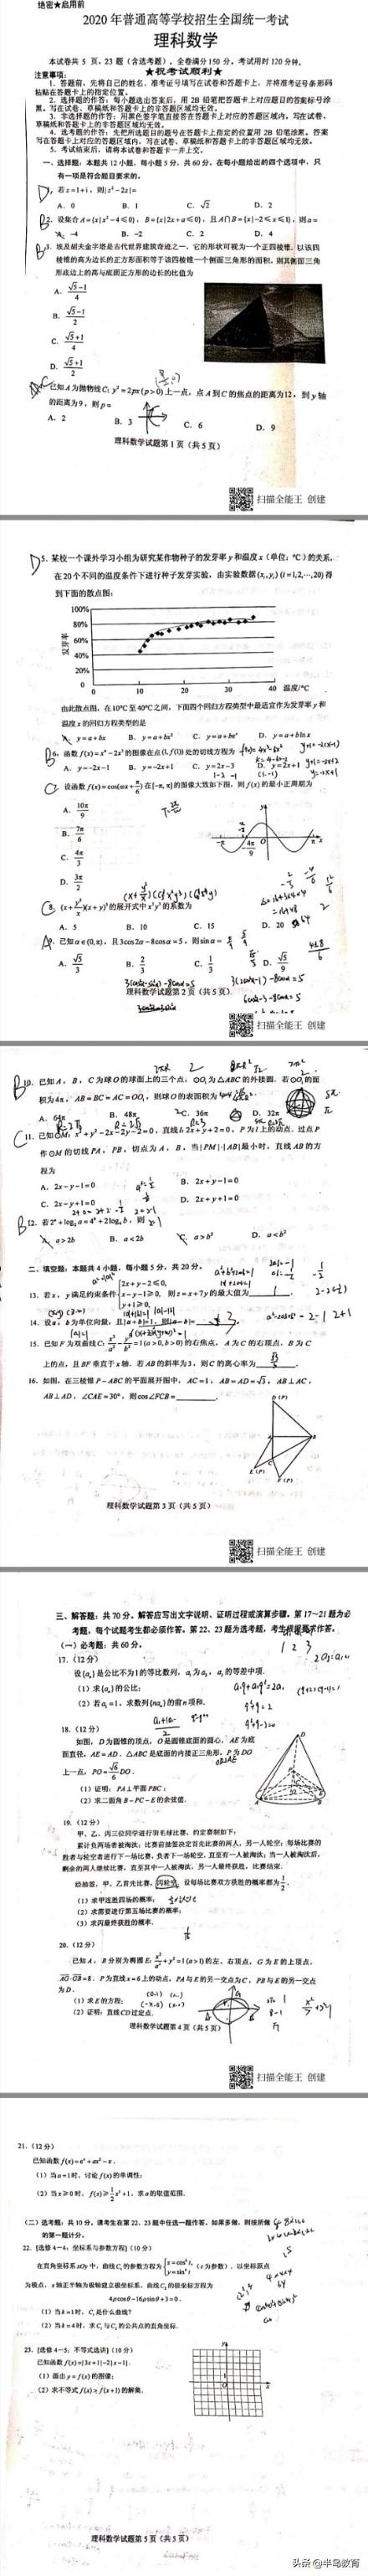 绝密★启用前
2020年普通高等学校招生全国统一考试
理科数学
本试卷共 5 页，23 题（含选考题）。全卷满分 150 分。考试用时 120 分钟。
★祝考试顺利★
注意事项：
1. 答题前，先将自己的姓名、准考证号填写在试卷和答题卡上，并将准考证号条形码
粘贴在答题卡上的指定位置。
2. 选择题的作答：每小题选出答案后，用 2B 铅笔把答题卡上对应题目的答案标号涂
黑。写在试卷、草稿纸和答题卡上的非答题区域均无效。
3. 非选择题的作答：用黑色签字笔直接答在答题卡上对应的答题区域内。写在试卷、
草稿纸和答题卡上的非答题区域均无效。
4. 选考题的作答：先把所选题目的题号在答题卡上指定的位置用 2B 铅笔涂黑。答案
写在答题卡上对应的答题区域内，写在试卷、草稿纸和答题卡上的非答题区域均无效。
5. 考试结束后，请将本试卷和答题卡一并上交。
一、选择题：本题共 12 小题，每小题 5 分，共 60 分。在每小题给出的四个选项中，只
有一项是符合题目要求的。
1. 若 z=1+i，则|z²−2z|=
A. 0 B. 1 C. √2 D. 2
2. 设集合 A={x|x²−4≤0}，B={x|2x+a≤0}，且 A∩B={x|−2≤x≤1}，则 a=
A. −4 B. −2 C. 2 D. 4
3. 埃及胡夫金字塔是古代世界建筑奇迹之一，它的形状可视为一个正四棱锥。以该四
棱锥的高为边长的正方形面积等于该四棱锥一个侧面三角形的面积，则其侧面三角
形底边上的高与底面正方形的边长的比值为
A. (√5−1)/4
B. (√5−1)/2
C. (√5+1)/4
D. (√5+1)/2
4. 已知 A 为抛物线 C：y²=2px(p>0) 上一点，点 A 到 C 的焦点的距离为 12，到 y 轴
的距离为 9，则 p=
A. 2 B. 3 C. 6 D. 9
理科数学试题第 1 页（共 5 页）
扫描全能王 创建
5. 某校一个课外学习小组为研究某作物种子的发芽率 y 和温度 x（单位：°C）的关系，
在 20 个不同的温度条件下进行种子发芽实验，由实验数据(xᵢ,yᵢ)(i=1,2,⋯,20)得
到下面的散点图：
100%
80%
60%
40%
20%
0
发芽率
0 10 20 30 40 温度/°C
由此散点图，在 10°C 至 40°C 之间，下面四个回归方程类型中最适宜作为发芽率 y 和
温度 x 的回归方程类型的是
A. y=a+bx B. y=a+bx² C. y=a+beˣ D. y=a+blnx
6. 函数 f(x)=x⁴−2x³ 的图像在点(1,f(1))处的切线方程为
A. y=−2x−1 B. y=−2x+1 C. y=2x−3 D. y=2x+1
7. 设函数 f(x)=cos(ωx+π/6)在[−π,π]的图像大致如下图，则 f(x) 的最小正周期为
A. 10π/9
B. 7π/6
C. 4π/3
D. 3π/2
8. (x+y²/x)(x+y)⁵ 的展开式中 x³y³ 的系数为
A. 5 B. 10 C. 15 D. 20
9. 已知 α∈(0,π)，且 3cos2α−8cosα=5，则 sinα=
A. √5/3 B. 2/3 C. 1/3 D. √5/9
理科数学试题第 2 页（共 5 页）
扫描全能王 创建
10. 已知 A，B，C 为球 O 的球面上的三个点，⊙O₁ 为△ABC 的外接圆。若⊙O₁ 的面
积为 4π，AB=BC=AC=OO₁，则球 O 的表面积为
A. 64π B. 48π C. 36π D. 32π
11. 已知⊙M：x²+y²−2x−2y−2=0，直线 l：2x+y+2=0，P 为 l 上的动点。过点 P
作⊙M 的切线 PA，PB，切点为 A，B，当|PM|·|AB|最小时，直线 AB 的方
程为
A. 2x−y−1=0 B. 2x+y−1=0
C. 2x−y+1=0 D. 2x+y+1=0
12. 若 2ᵃ+log₂a=4ᵇ+2log₄b，则
A. a>2b B. a<2b C. a>b² D. a<b²
二、填空题：本题共 4 小题，每小题 5 分，共 20 分。
13. 若 x，y 满足约束条件 {2x+y−2≤0, x−y−1≥0, y+1≥0, 则 z=x+7y 的最大值为
14. 设 a，b 为单位向量，且|a+b|=1，则|a−b|=
15. 已知 F 为双曲线 C：x²/a²−y²/b²=1(a>0,b>0)的右焦点，A 为 C 的右顶点，B 为 C
上的点，且 BF 垂直于 x 轴。若 AB 的斜率为 3，则 C 的离心率为
16. 如图，在三棱锥 P−ABC 的平面展开图中，AC=1，AB=AD=√3，AB⊥AC，
AB⊥AD，∠CAE=30°，则 cos∠FCB=
D (P)
A
B
C
E (P)
F (P)
理科数学试题第 3 页（共 5 页）
扫描全能王 创建
三、解答题：共 70 分。解答应写出文字说明、证明过程或演算步骤。第 17～21 题为必
考题，每个试题考生都必须作答。第 22、23 题为选考题，考生根据要求作答。
（一）必考题：共 60 分。
17.（12 分）
设{aₙ}是公比不为 1 的等比数列，a₁ 为 a₂，a₃ 的等差中项。
（1）求{aₙ}的公比；
（2）若 a₁=1，求数列{naₙ}的前 n 项和。
18.（12 分）
如图，D 为圆锥的顶点，O 是圆锥底面的圆心，AE 为底
面直径，AE=AD。△ABC 是底面的内接正三角形，P 为 DO
上一点，PO=(√6/6)DO。
（1）证明：PA⊥平面 PBC；
（2）求二面角 B−PC−E 的余弦值。
19.（12 分）
甲、乙、丙三位同学进行羽毛球比赛，约定赛制如下：
累计负两场者被淘汰；比赛前抽签决定首先比赛的两人，另一人轮空；每场比赛的
胜者与轮空者进行下一场比赛，负者下一场轮空，直至有一人被淘汰；当一人被淘汰后，
剩余的两人继续比赛，直至其中一人被淘汰，另一人最终获胜，比赛结束。
经抽签，甲、乙首先比赛，丙轮空。设每场比赛双方获胜的概率都为 1/2。
（1）求甲连胜四场的概率；
（2）求需要进行第五场比赛的概率；
（3）求丙最终获胜的概率。
20.（12 分）
已知 A，B 分别为椭圆 E：x²/a²+y²=1(a>1)的左、右顶点，G 为 E 的上顶点，
AG·GB=8。P 为直线 x=6 上的动点，PA 与 E 的另一交点为 C，PB 与 E 的另一交点
为 D。
（1）求 E 的方程；
（2）证明：直线 CD 过定点。
理科数学试题第 4 页（共 5 页）
扫描全能王 创建
21.（12 分）
已知函数 f(x)=eˣ+ax²−x。
（1）当 a=1 时，讨论 f(x) 的单调性；
（2）当 x≥0 时，f(x)≥(1/2)x³+1，求 a 的取值范围。
（二）选考题：共 10 分。请考生在第 22、23 题中任选一题作答。如果多做，则按所做
的第一题计分。
22. [选修 4−4：坐标系与参数方程]（10 分）
在直角坐标系 xOy 中，曲线 C₁ 的参数方程为 {x=cosᵏt, y=sinᵏt （t 为参数）。以坐标原点
为极点，x 轴正半轴为极轴建立极坐标系，曲线 C₂ 的极坐标方程为
4ρcosθ−16ρsinθ+3=0。
（1）当 k=1 时，C₁ 是什么曲线？
（2）当 k=4 时，求 C₁ 与 C₂ 的公共点的直角坐标。
23. [选修 4−5：不等式选讲]（10 分）
已知函数 f(x)=|3x+1|−2|x−1|。
（1）画出 y=f(x) 的图像；
（2）求不等式 f(x)>f(x+1) 的解集。
理科数学试题第 5 页（共 5 页）
头条 @半鸟教育